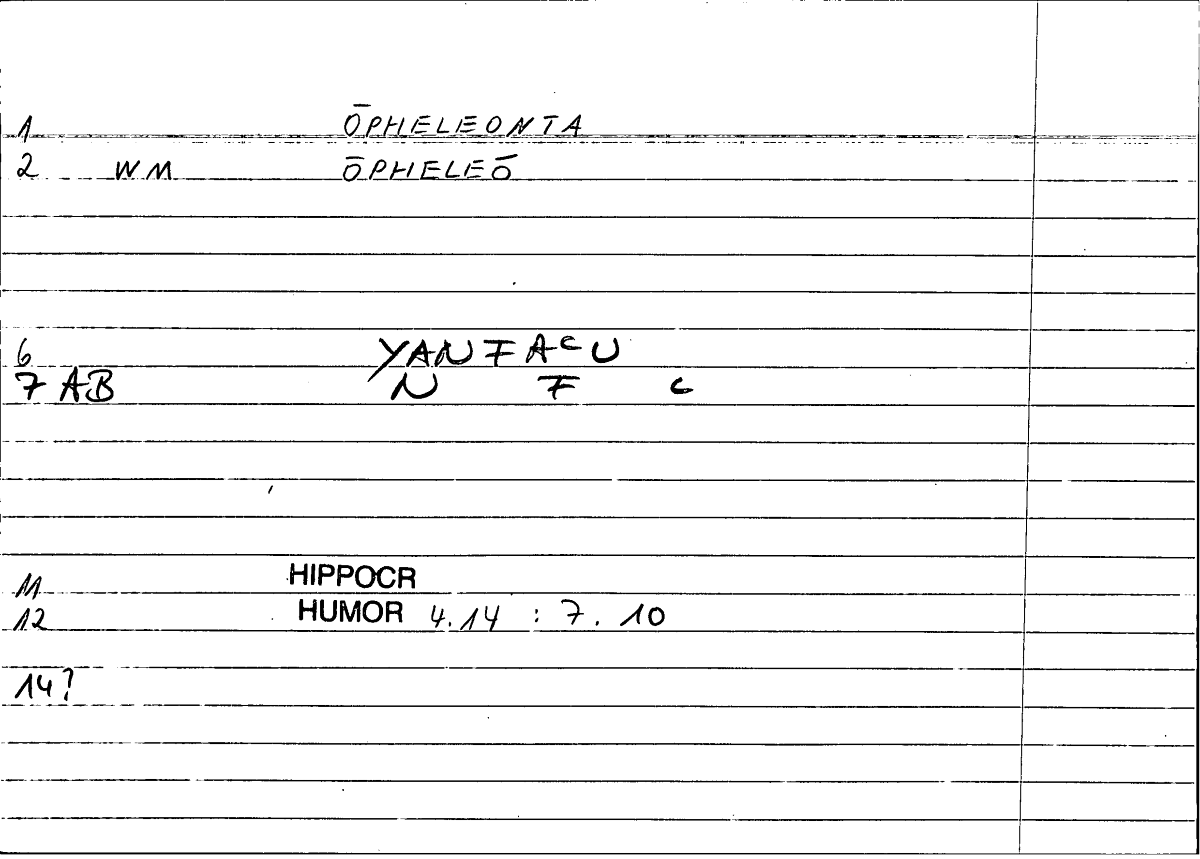 1 ŌPHELEONTA
2 WM ŌPHELEŌ
6 YANFACU
7 AB N F C
11 HIPPOCR
12 HUMOR 4.14 : 7. 10
14?